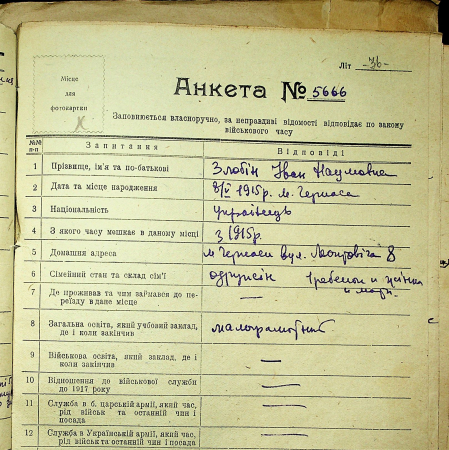 Літ -36-
Місце
для
фотокартки
Анкета № 5666
Заповнюється власноручно, за неправдиві відомості відповідає по закону
військового часу
№№
п-п
Запитання
Відповіді
1 Прізвище, ім'я та по-батькові Злобін Іван Наумович
2 Дата та місце народження 8/V 1915р. м. Черкаси
3 Національність українець
4 З якого часу мешкає в даному місці з 1915р.
5 Домашня адреса м Черкаси вул. 8
6 Сімейний стан та склад сім'ї 1 ребенок и жінка
и мати.
7 Де проживав та чим займався до пе-
реїзду в дане місце —
8 Загальна освіта, який учбовий заклад,
де і коли закінчив малограмотний
9 Військова освіта, який заклад, де і
коли закінчив —
10 Відношення до військової служби
до 1917 року —
11 Служба в б. царській армії, який час,
рід військ та останній чин і
посада —
12 Служба в Українській армії, який час,
рід військ та останній чин і посада —